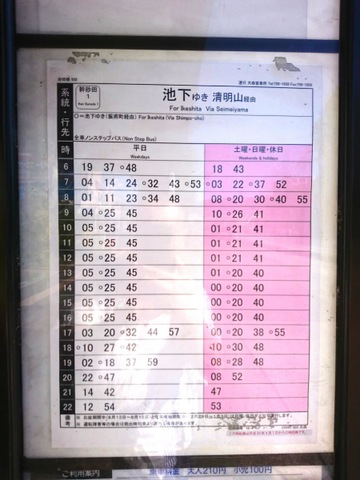 幹砂田
1
池下ゆき 清明山経由
For Ikeshita Via Seimeiyama
系統・行先
全車ノンストップバス(Non Stop Bus)
時 平日 土曜・日曜・休日
Weekdays Weekends & holidays
6 19 37 ○48 18 43
7 04 14 24 ○32 43 ○53 ○03 22 ○37 52
8 01 11 23 ○34 48 08 ○20 30 ○40 55
9 04 ○25 45 10 ○26 41
10 05 ○25 45 01 ○21 41
11 05 ○25 45 01 ○21 41
12 05 ○25 45 01 ○21 41
13 05 ○25 45 01 ○20 40
14 05 ○25 45 00 ○20 40
15 05 ○25 45 00 ○20 40
16 05 ○25 45 00 ○20 40
17 03 20 ○32 44 57 00 ○20 38 ○55
18 ○10 27 ○42 ○10 30 48
19 02 ○18 37 59 08 ○28 48
20 22 ○47 08 52
21 14 42 47
22 12 54 53
備考
ご利用案内
大人210円 小児100円